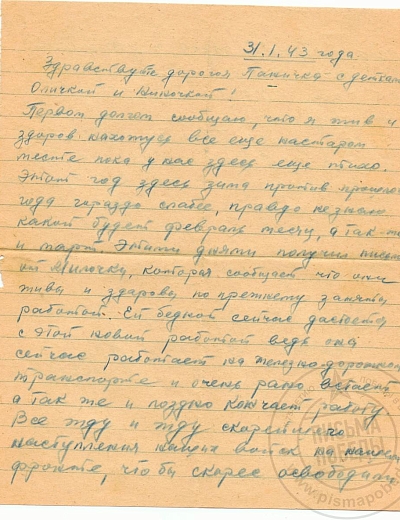 31.1.43 года
Здравствуйте дорогая Паничка с детками
Оличкой и Ниночкой!
Первом долгом сообщаю, что я жив и
здоров. нахожусь все еще на старом
месте пока у нас здесь еще тихо.
Этот год здесь зима против прошлого
года гораздо слабее, правда не знаю
какой будет февраль месяц, а так-же
и март. Этими днями получил письмо
от Милочки, которая сообщает что они
живы и здоровы по прежнему заняты
работой. Ей бедной сейчас достается
с этой новой работой ведь она
сейчас работает на железно дорожном
транспорте и очень рано встает
а так же и поздно кончает работу
Все жду и жду скорейшего
наступления наших войск на нашем
фронте, что бы скорее освободили
ПИСЬМА
ПОБЕДЫ
www.pismapobedy